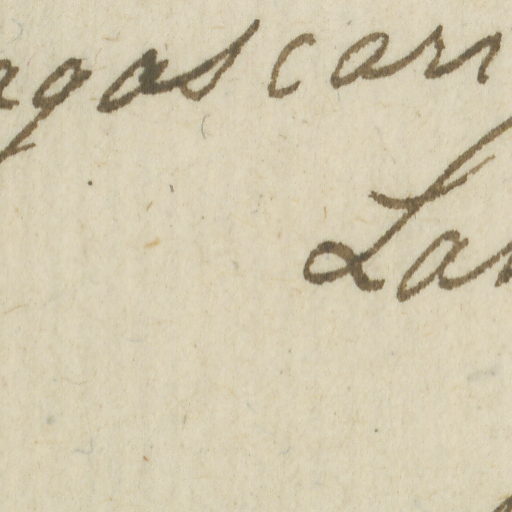 agascari
La